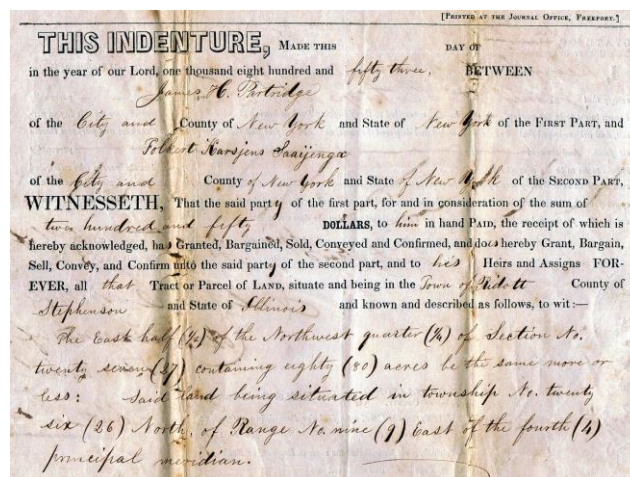 [Printed at the Journal Office, Freeport.]
THIS INDENTURE, Made this day of
in the year of our Lord, one thousand eight hundred and fifty three, BETWEEN
James H. Partridge
of the City and County of New York and State of New York of the First Part, and
Folkert Karsjens Saaijenga
of the City and County of New York and State of New York of the Second Part,
WITNESSETH, That the said party of the first part, for and in consideration of the sum of
two hundred and fifty DOLLARS, to him in hand Paid, the receipt of which is
hereby acknowledged, has Granted, Bargained, Sold, Conveyed and Confirmed, and does hereby Grant, Bargain,
Sell, Convey, and Confirm unto the said party of the second part, and to his Heirs and Assigns FOR-
EVER, all that Tract or Parcel of Land, situate and being in the Town of Ridott County of
Stephenson and State of Illinois and known and described as follows, to wit:—
The East half (½) of the Northwest quarter (¼) of Section No.
twenty seven (27) containing eighty (80) acres be the same more or
less: Said land being situated in township No. twenty
six (26) North, of Range No. nine (9) East of the fourth (4)
principal meridian.